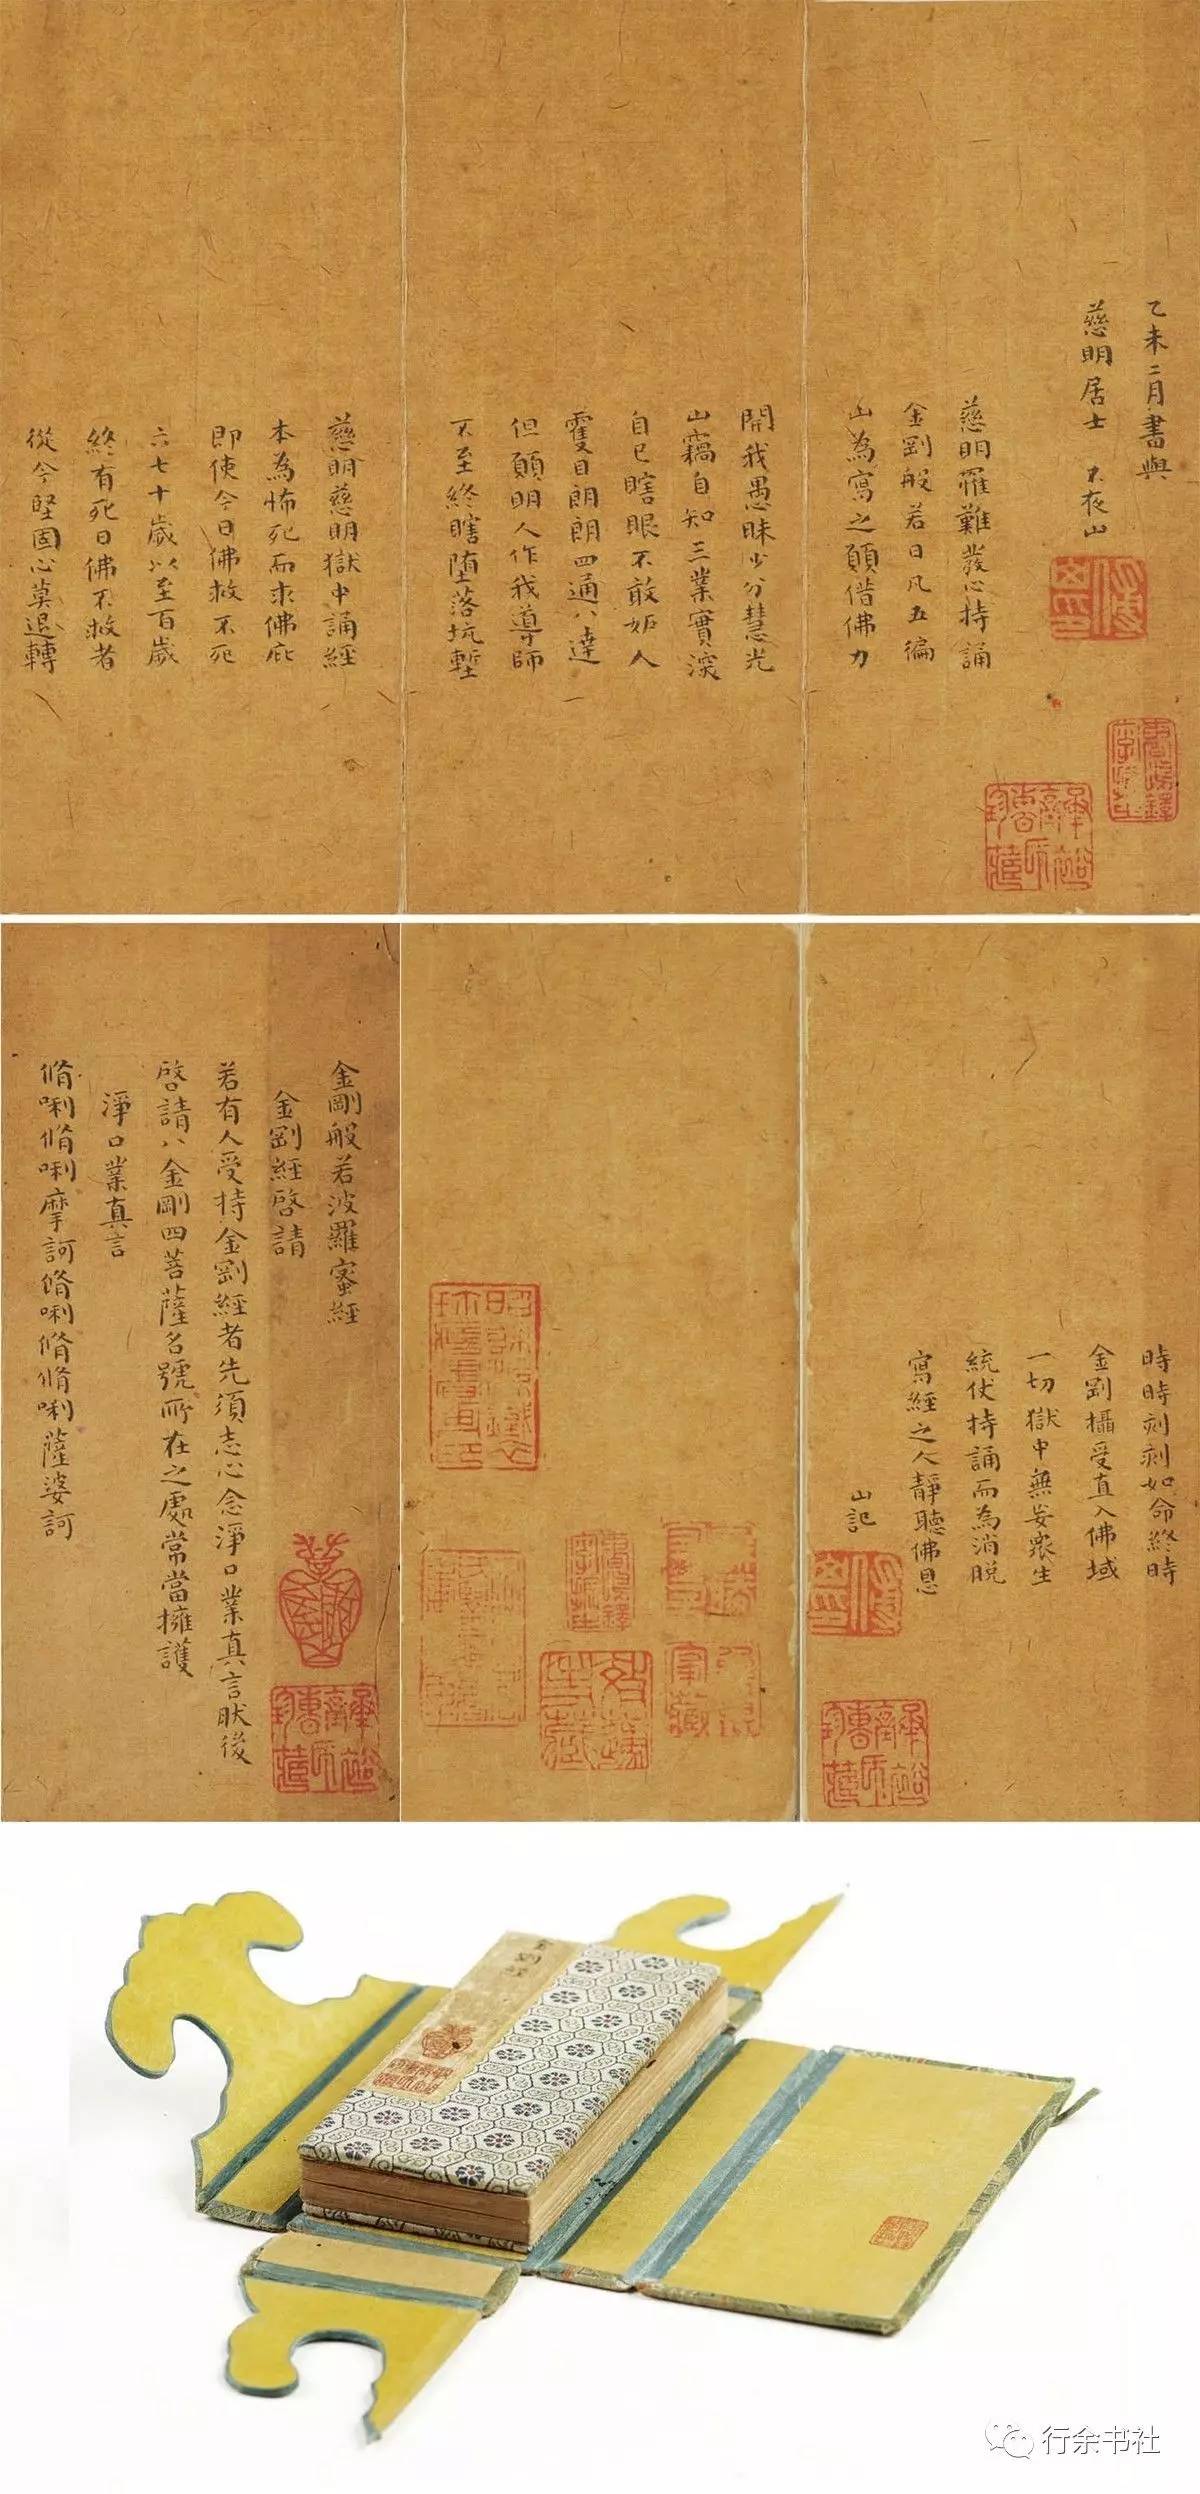 乙未二月書與
慈明居士 不夜山
慈明罹難發心持誦
金剛般若日凡五徧
山為寫之願借佛力
開我愚昧少分慧光
山竊自知三業實深
自己瞎眼不敢妒人
雙目朗朗四通八達
但願明人作我導師
不至終瞎墮落坑塹
慈明慈明獄中誦經
本為怖死而求佛庇
即使今日佛救不死
六七十歲以至百歲
終有死日佛不救者
從今堅固心莫退轉
時時刻刻如命終時
金剛攝受直入佛域
一切獄中無妄眾生
統伏持誦而為消脫
寫經之人靜聽佛恩
山記
金剛般若波羅蜜經
金剛經啓請
若有人受持金剛經者先須志心念淨口業真言肰後
啓請八金剛四菩薩名號所在之處常當擁護
淨口業真言
脩唎脩唎摩訶脩唎脩脩唎薩婆訶
金剛經
行余书社